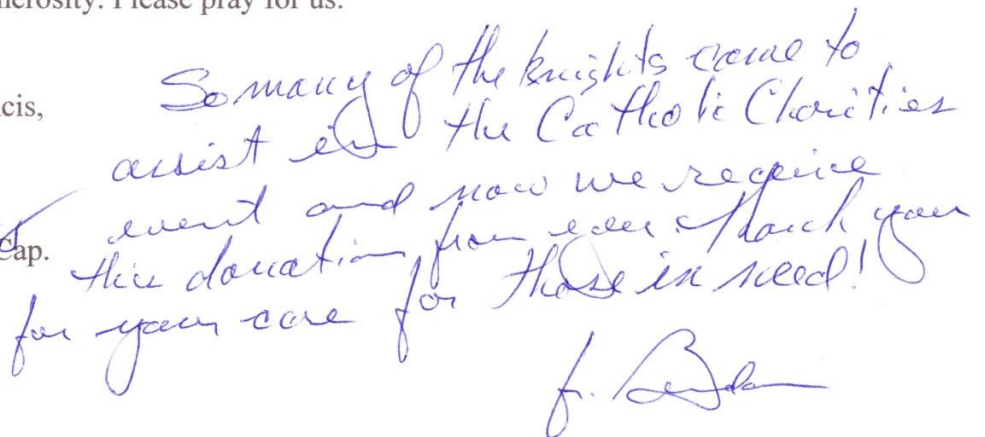 nerosity. Please pray for us.
So many of the knights came to
cis,
assist in the Catholic Charities
event and now we receive
this donation from you. Thank you
Cap.
for your care for those in need!
fr.